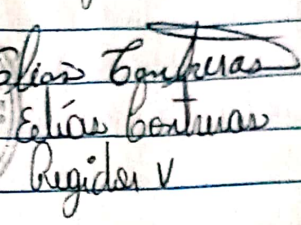 Elías Contreras
Elías Contreras
Regidor V